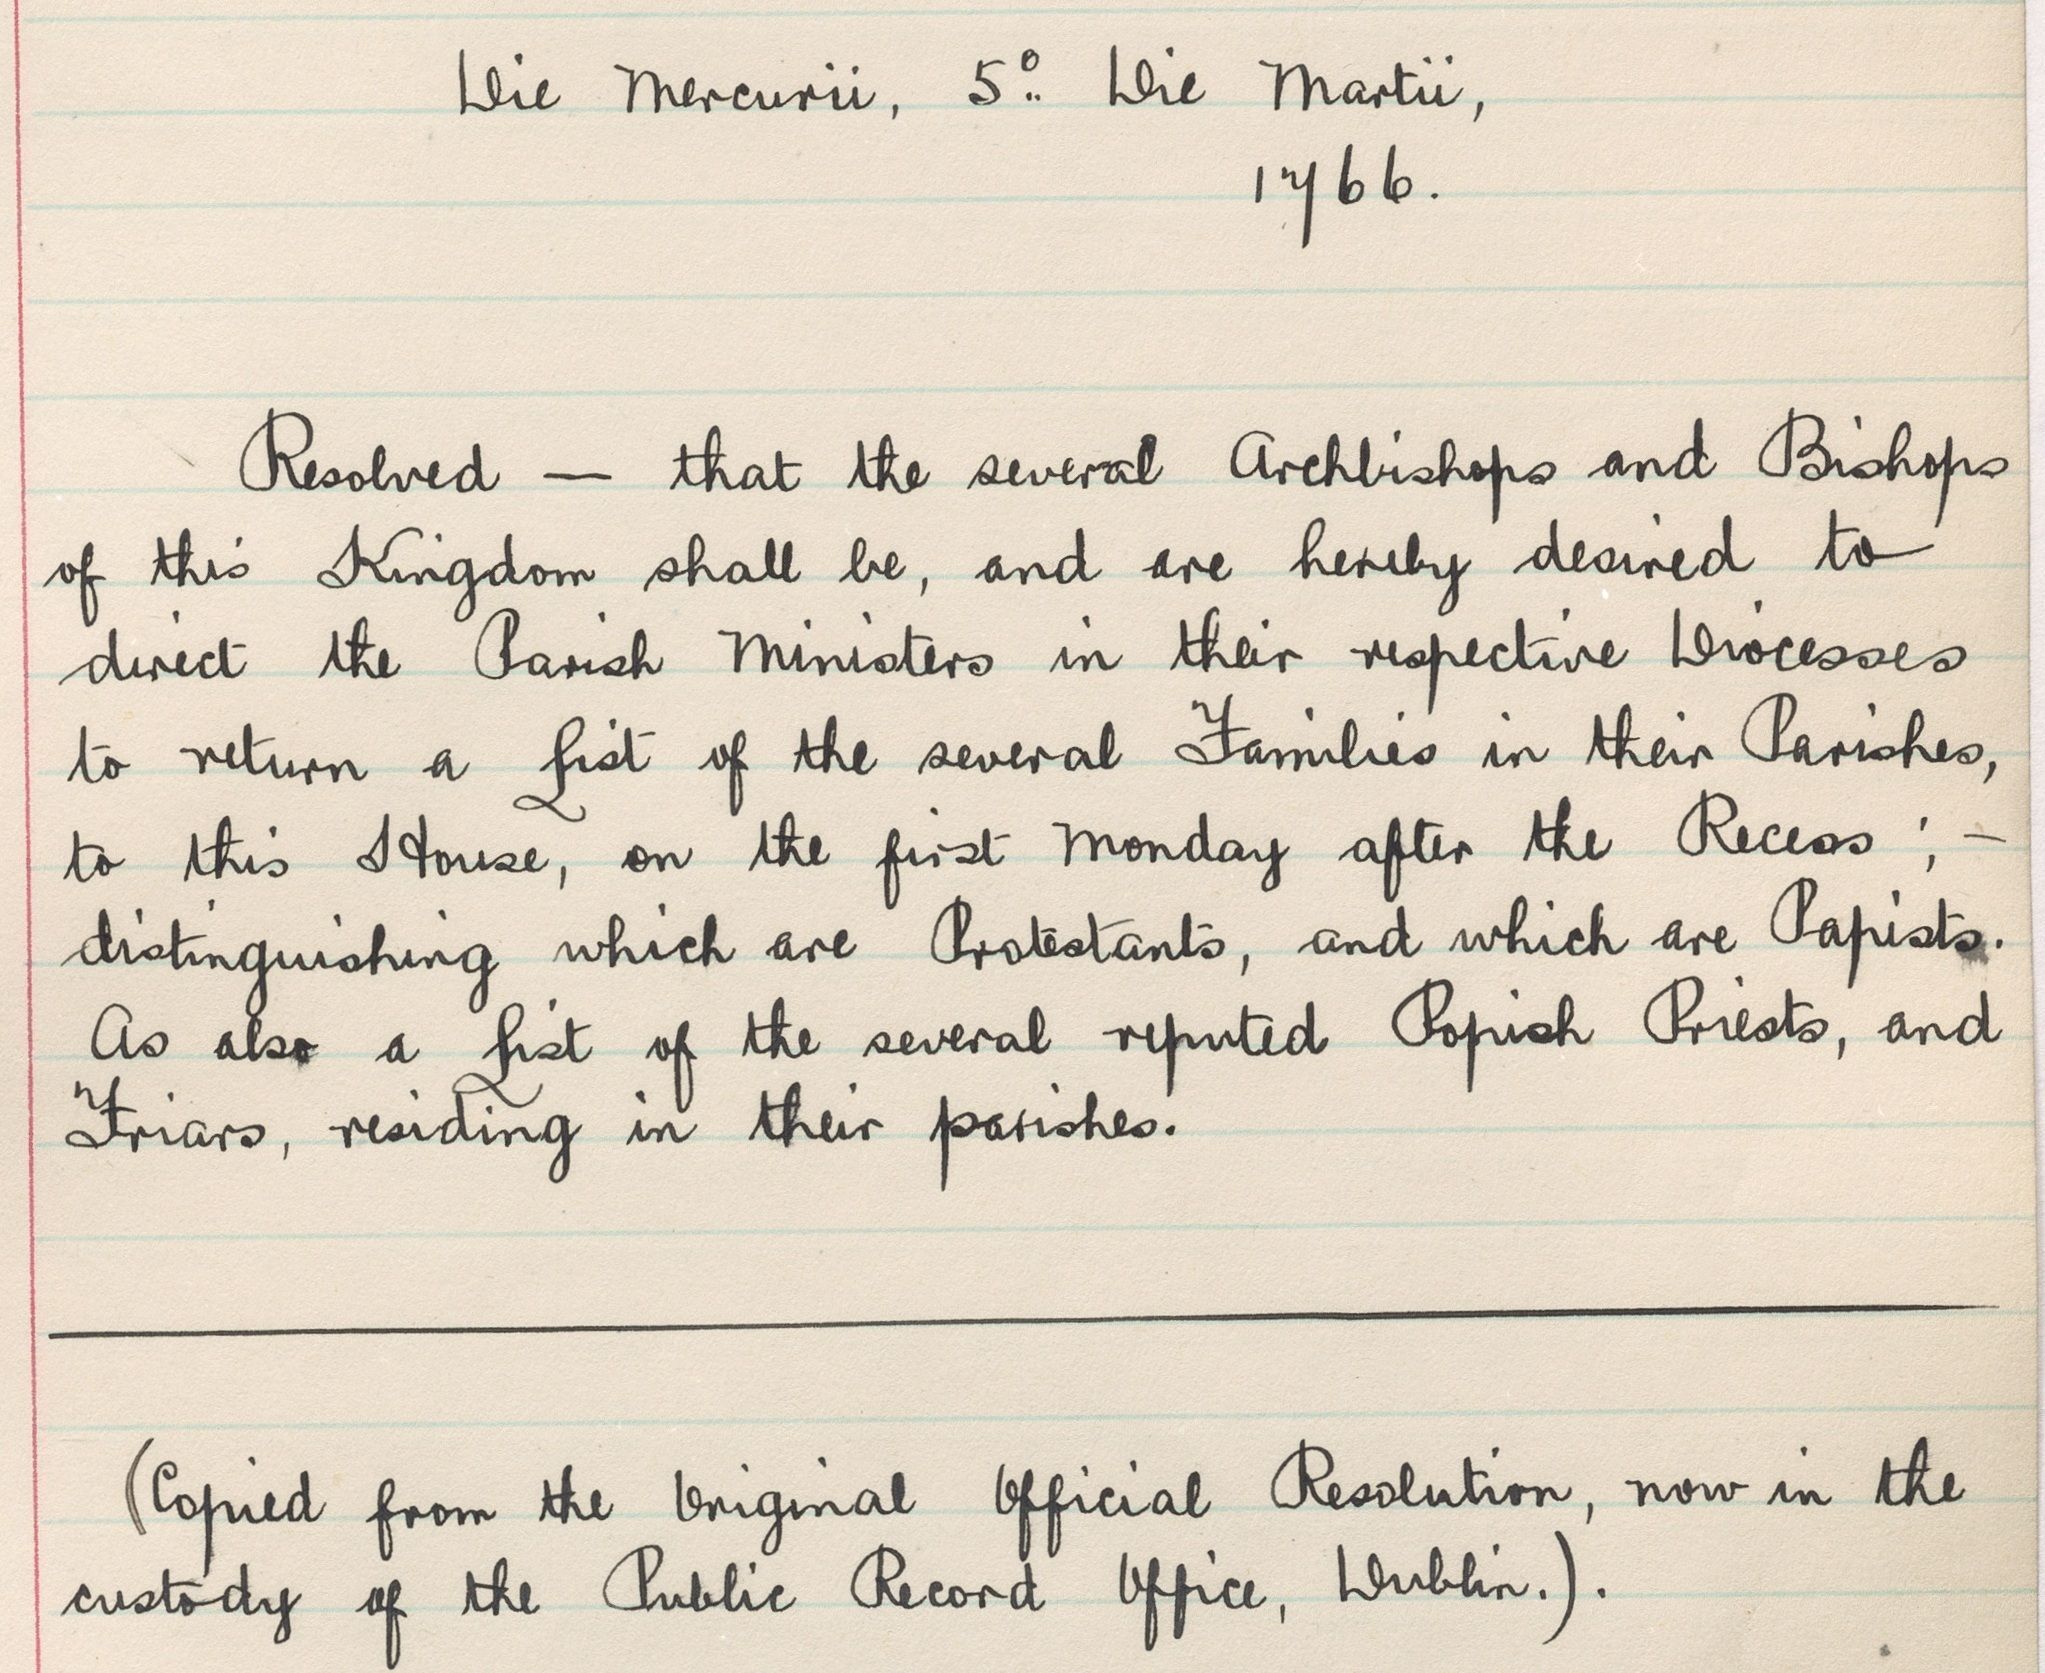 Die Mercurii, 5º. Die Martii,
1766.
Resolved — that the several Archbishops and Bishops
of this Kingdom shall be, and are hereby desired to
direct the Parish Ministers in their respective Diocesses
to return a List of the several Families in their Parishes,
to this House, on the first Monday after the Recess ; —
distinguishing which are Protestants, and which are Papists.
As also a List of the several reputed Popish Priests, and
Friars, residing in their parishes.
(Copied from the Original Official Resolution, now in the
custody of the Public Record Office, Dublin.).